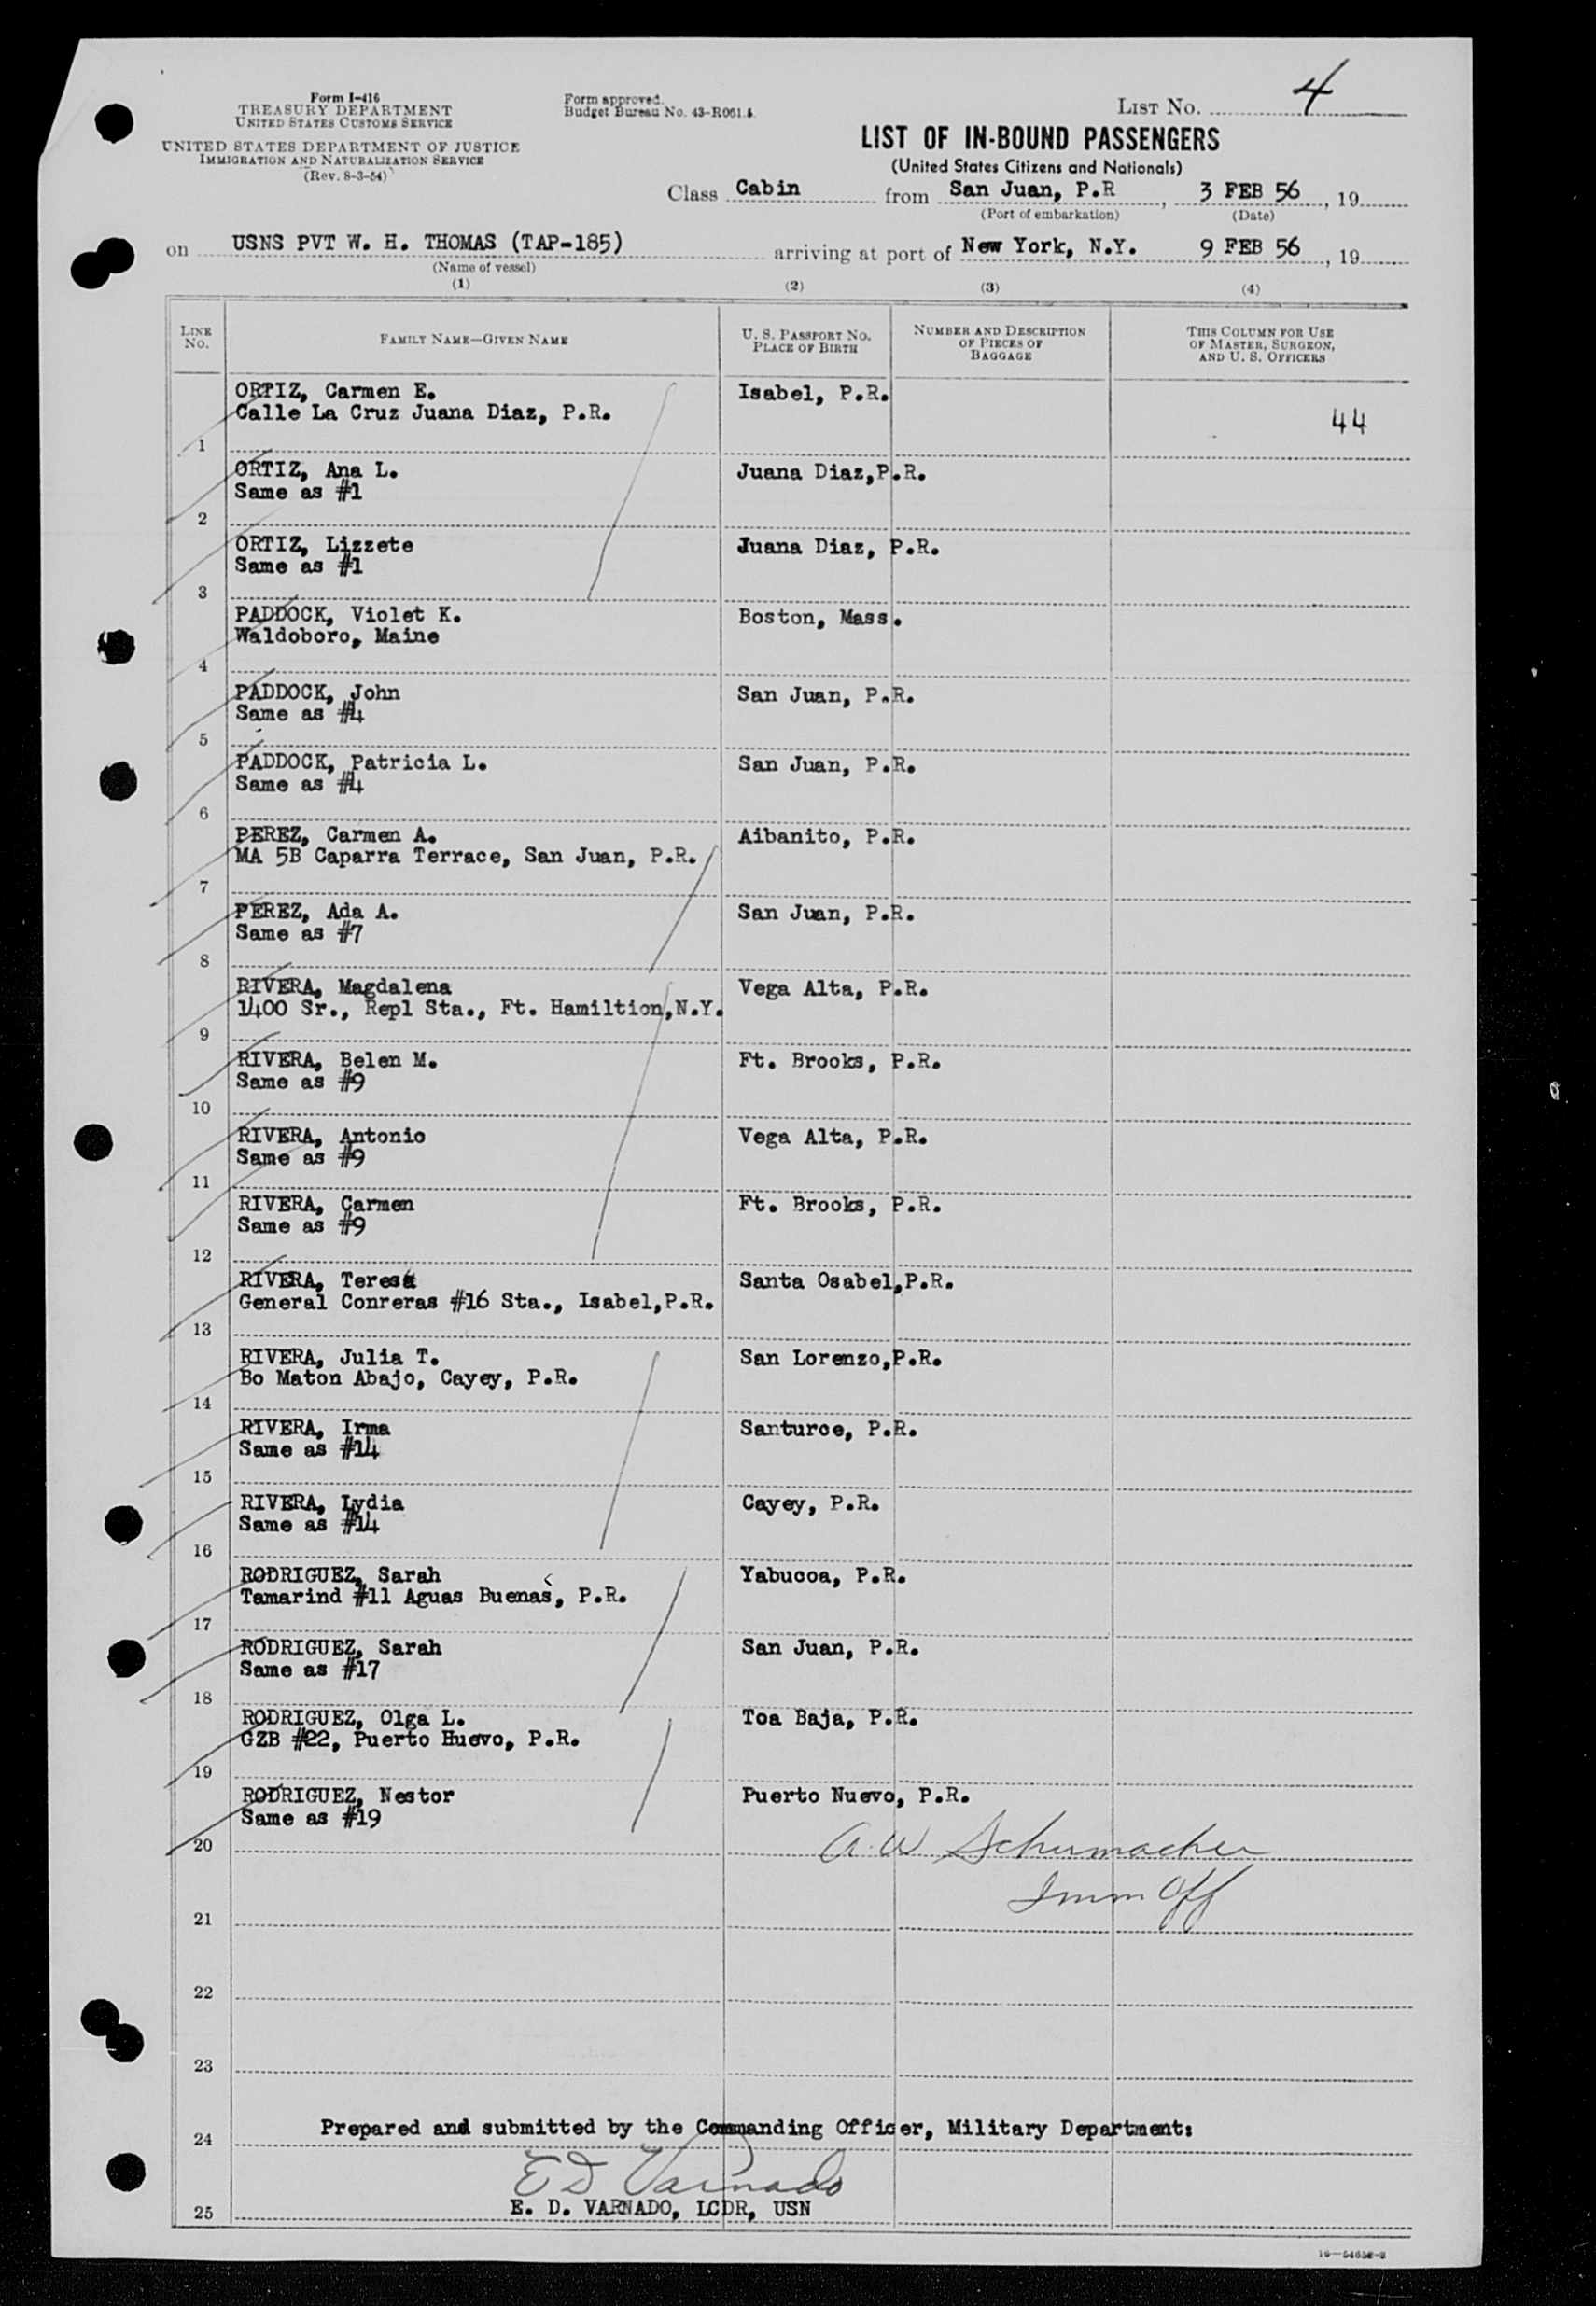 Form I-416
TREASURY DEPARTMENT
UNITED STATES CUSTOMS SERVICE
UNITED STATES DEPARTMENT OF JUSTICE
IMMIGRATION AND NATURALIZATION SERVICE
(Rev. 8-3-54)
Form approved.
Budget Bureau No. 43-R061.4.
LIST No. 4
LIST OF IN-BOUND PASSENGERS
(United States Citizens and Nationals)
Class Cabin from San Juan, P.R, 3 FEB 56, 19
(Port of embarkation) (Date)
on USNS PVT W. H. THOMAS (TAP-185) arriving at port of New York, N.Y. 9 FEB 56, 19
(Name of vessel)
(1) (2) (3) (4)
LINE NO. FAMILY NAME—GIVEN NAME U. S. PASSPORT NO. PLACE OF BIRTH NUMBER AND DESCRIPTION OF PIECES OF BAGGAGE THIS COLUMN FOR USE OF MASTER, SURGEON, AND U. S. OFFICERS
ORTIZ, Carmen E. Isabel, P.R.
Calle La Cruz Juana Diaz, P.R. 44
1
ORTIZ, Ana L. Juana Diaz,P.R.
Same as #1
2
ORTIZ, Lizzete Juana Diaz, P.R.
Same as #1
3
PADDOCK, Violet K. Boston, Mass.
Waldoboro, Maine
4
PADDOCK, John San Juan, P.R.
Same as #4
5
PADDOCK, Patricia L. San Juan, P.R.
Same as #4
6
PEREZ, Carmen A. Aibanito, P.R.
MA 5B Caparra Terrace, San Juan, P.R.
7
PEREZ, Ada A. San Juan, P.R.
Same as #7
8
RIVERA, Magdalena Vega Alta, P.R.
1400 Sr., Repl Sta., Ft. Hamiltion,N.Y.
9
RIVERA, Belen M. Ft. Brooks, P.R.
Same as #9
10
RIVERA, Antonio Vega Alta, P.R.
Same as #9
11
RIVERA, Carmen Ft. Brooks, P.R.
Same as #9
12
RIVERA, Teresa Santa Osabel,P.R.
General Conreras #16 Sta., Isabel,P.R.
13
RIVERA, Julia T. San Lorenzo,P.R.
Bo Maton Abajo, Cayey, P.R.
14
RIVERA, Irma Santurce, P.R.
Same as #14
15
RIVERA, Lydia Cayey, P.R.
Same as #14
16
RODRIGUEZ, Sarah Yabucoa, P.R.
Tamarind #11 Aguas Buenas, P.R.
17
RODRIGUEZ, Sarah San Juan, P.R.
Same as #17
18
RODRIGUEZ, Olga L. Toa Baja, P.R.
GZB #22, Puerto Huevo, P.R.
19
RODRIGUEZ, Nestor Puerto Nuevo, P.R.
Same as #19
20 A. W Schumacher
Imm Off
21
22
23
Prepared and submitted by the Commanding Officer, Military Department:
24
E D Varnado
E. D. VARNADO, LCDR, USN
25